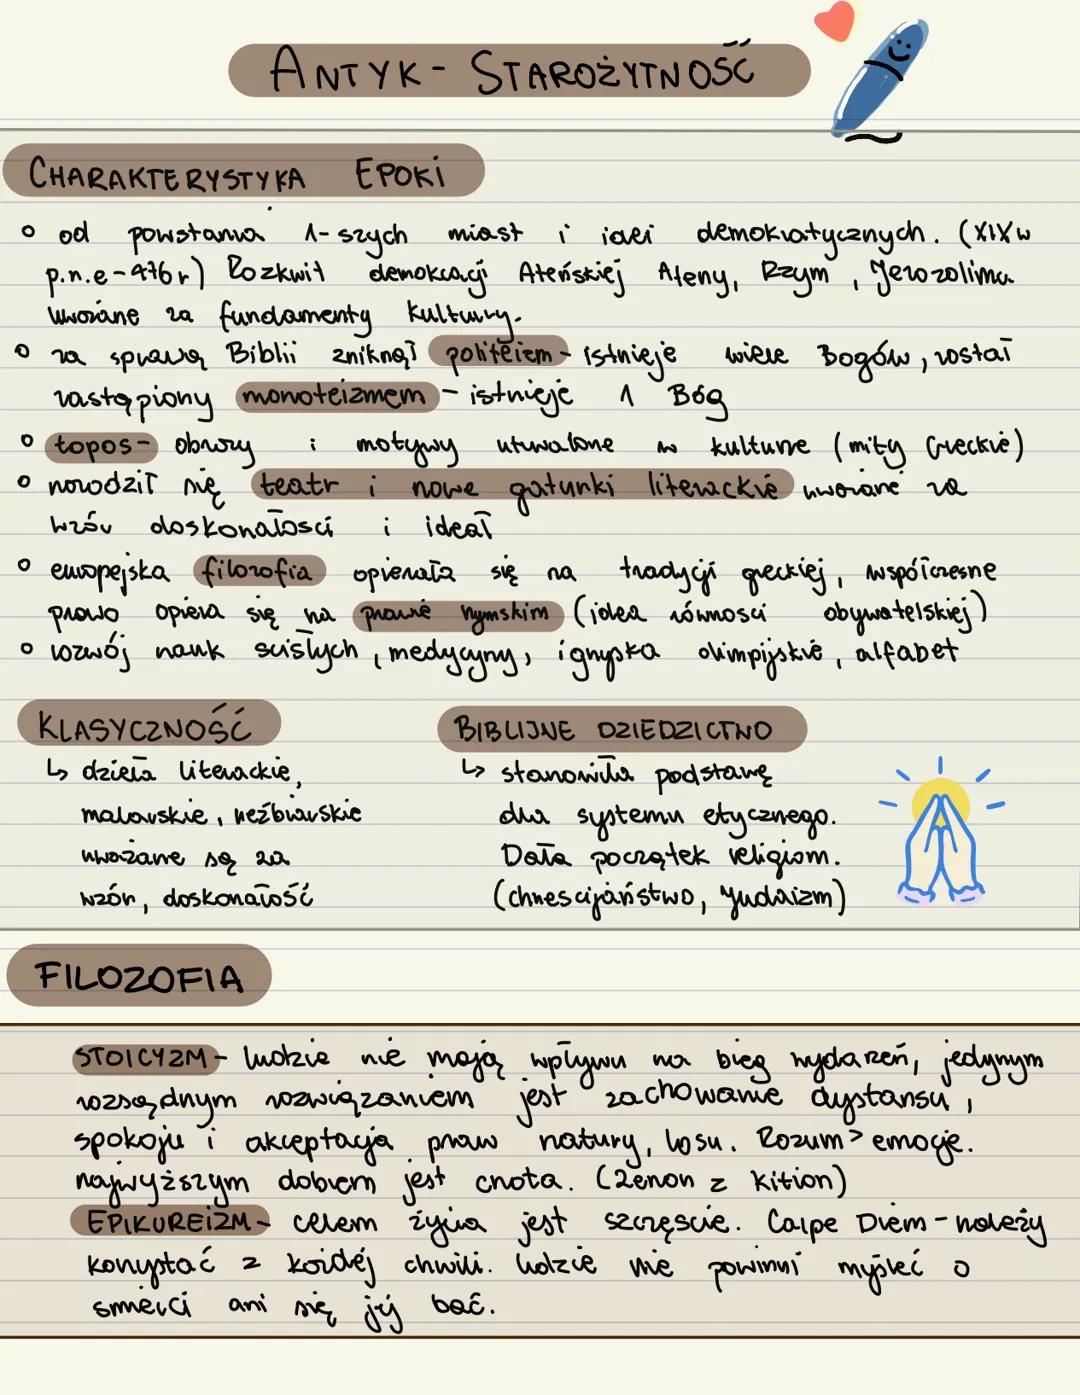 ANTYK - STAROŻYTNOŚĆ
CHARAKTERYSTYKA EPOKI
od powstania 1-szych miast i idei demokratycznych. (XIXw
p.n.e-476r) Rozkwit demokracji Ateńskiej Ateny, Rzym, Jerozolima
uważane za fundamenty kultury.
za sprawą Biblii zniknął politeizm - istnieje wiele Bogów, został
zastąpiony monoteizmem - istnieje 1 Bóg
topos - obrazy i motywy utrwalone w kulturze (mity Greckie)
narodził się teatr i nowe gatunki literackie uważane za
wzór doskonałości i ideał
europejska filozofia opierała się na tradycji greckiej, współczesne
prawo opiera się na prawie rzymskim (idea równości obywatelskiej)
rozwój nauk ścisłych, medycyny, igrzyska olimpijskie, alfabet
KLASYCZNOŚĆ
↳ dzieła literackie,
malarskie, rzeźbiarskie
uważane są za
wzór, doskonałość
BIBLIJNE DZIEDZICTWO
↳ stanowiła podstawę
dla systemu etycznego.
Dała początek religiom.
(chrześcijaństwo, judaizm)
FILOZOFIA
STOICYZM - ludzie nie mają wpływu na bieg wydarzeń, jedynym
rozsądnym rozwiązaniem jest zachowanie dystansu,
spokoju i akceptacja praw natury, losu. Rozum > emocje.
najwyższym dobrem jest cnota. (Zenon z Kition)
EPIKUREIZM - celem życia jest szczęście. Carpe Diem - należy
korzystać z każdej chwili. ludzie nie powinni myśleć o
śmierci ani się jej bać.